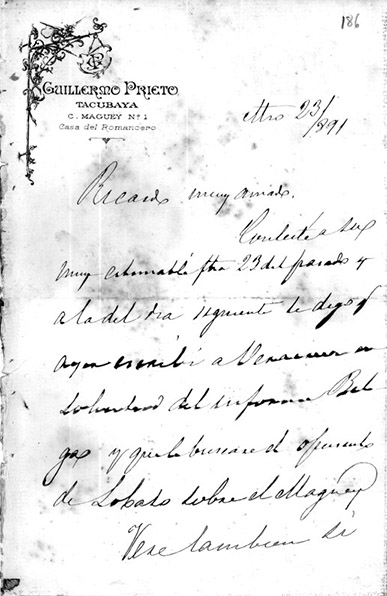 186
GUILLERMO PRIETO
TACUBAYA
C. MAGUEY Nº 1
Casa del Romancero
Mzo 23/891
Ricardo muy amado.
Contesto a su
muy estimable fha 23 del pasado y
a la del dia siguiente le digo q
ayer escribi a Veracruz en
solicitud del informe
y que le buscase el
de Lobato sobre el Maguey
Vere tambien si